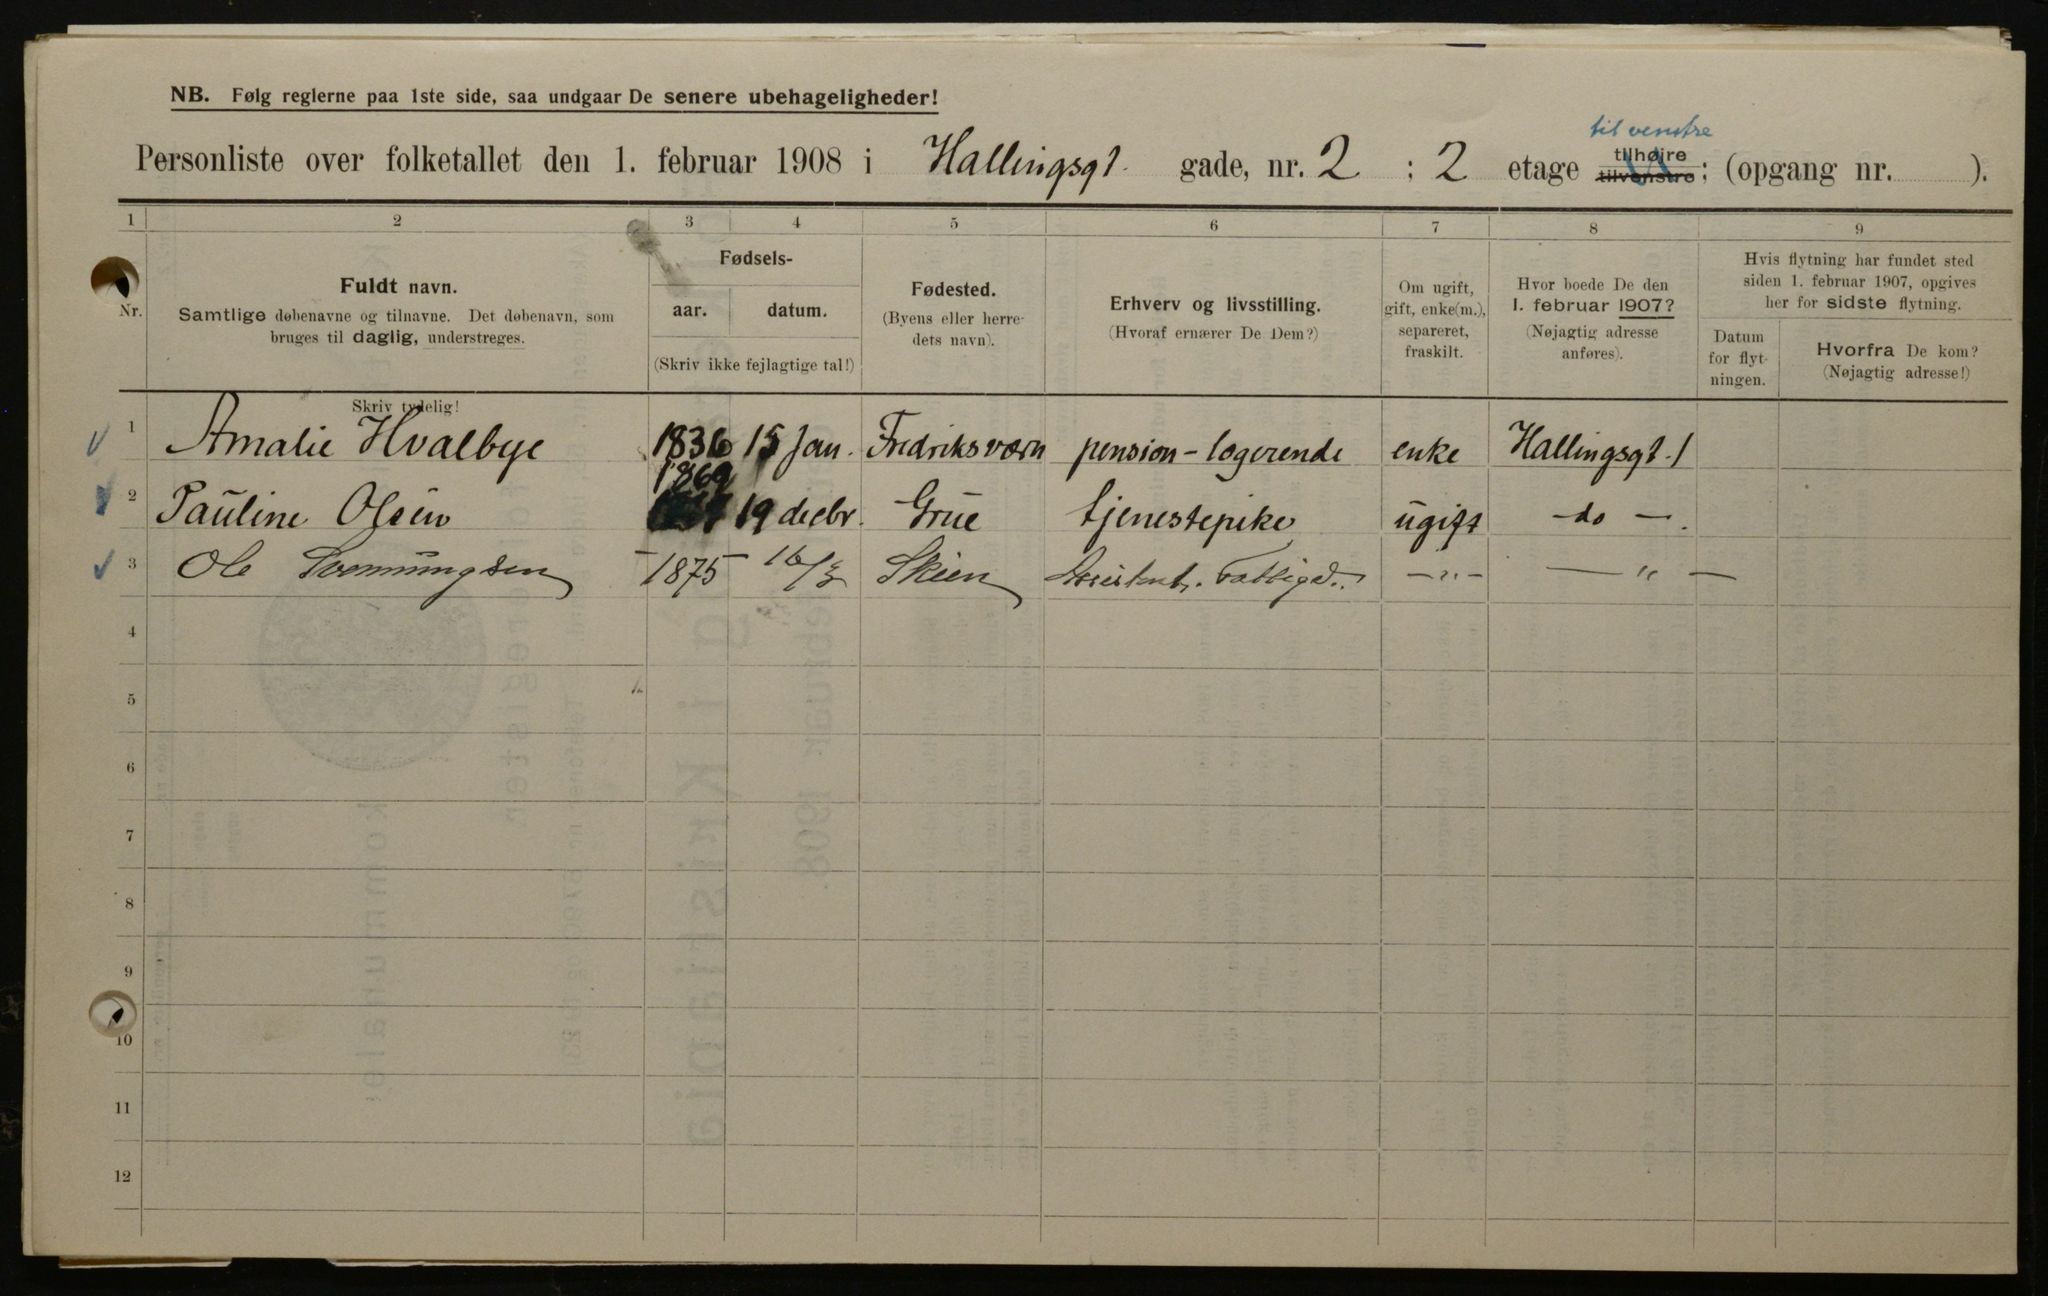 NB. Følg reglerne paa 1ste side, saa undgaar De senere ubehageligheder!
til venstre
Personliste over folketallet den 1. februar 1908 i Hallingsgt. gade, nr. 2 : 2 etage tilhøire tilvenstre; (opgang nr. ).
1 2 3 4 5 6 7 8 9
Nr.
Fuldt navn.
Samtlige døbenavne og tilnavne. Det døbenavn, som
bruges til daglig, understreges.
Skriv tydelig!
Fødsels-
aar. datum.
(Skriv ikke fejlagtige tal!)
Fødested.
(Byens eller herre-
dets navn).
Erhverv og livsstilling.
(Hvoraf ernærer De Dem?)
Om ugift,
gift, enke(m.),
separeret,
fraskilt.
Hvor boede De den
1. februar 1907?
(Nøjagtig adresse
anføres).
Hvis flytning har fundet sted
siden 1. februar 1907, opgives
her for sidste flytning.
Datum
for flyt-
ningen.
Hvorfra De kom?
(Nøjagtig adresse!)
1 Amalie Hvalbye 1836 15 Jan. Fredriksværn pension-logerende enke Hallingsgt. 1
1869
2 Pauline Olsen 19 decbr. Grue tjenestepike ugift -do-.
3 Ole Svennungsen 1875 Skien Assistent. -"- -"-
4
5
6
7
8
9
10
11
12